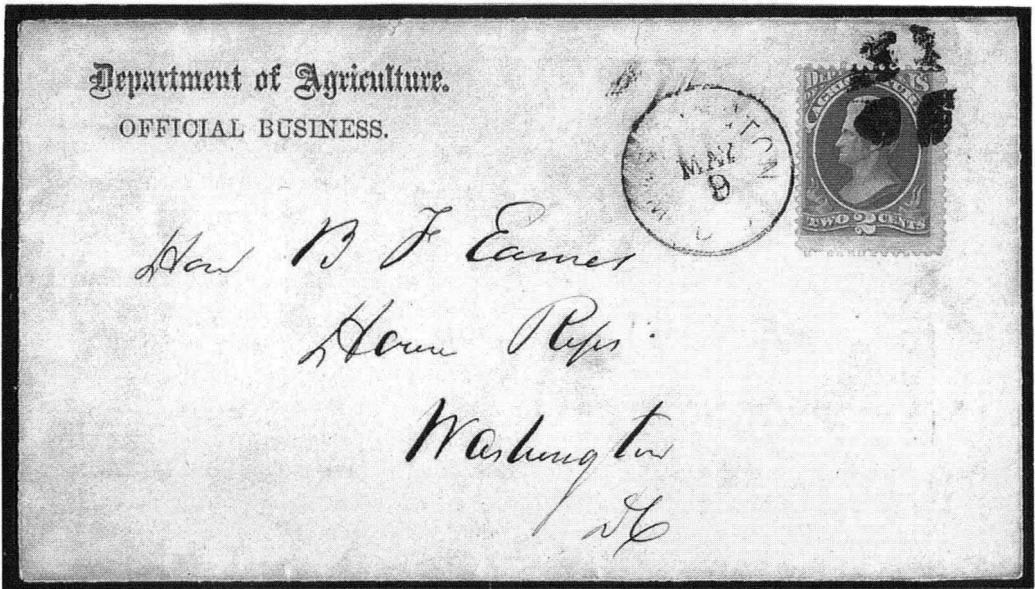 Department of Agriculture.
OFFICIAL BUSINESS.
WASHINGTON
MAY
9
AGRICULTURE
TWO 2 CENTS
Hon B F Eames
House Reps.
Washington
DC